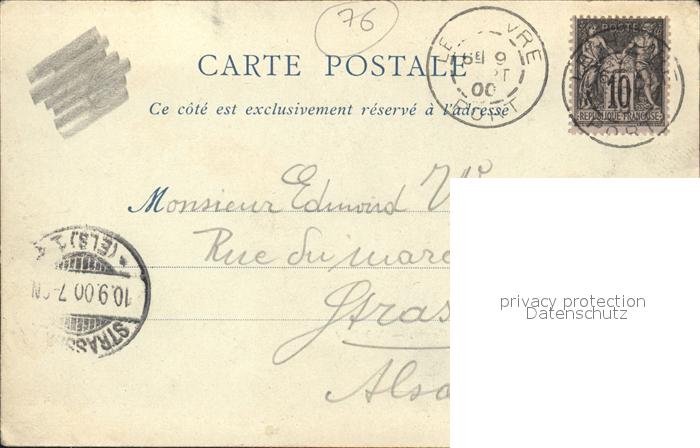 76
CARTE POSTALE
Ce côté est exclusivement réservé à l'adresse
LE VRE
9
00
PORT
POSTES
10
REPUBLIQUE FRANÇAISE
Monsieur Edmond W
Rue du marc
Stras
Alsa
STRASS
10.9.00.7-8N
*(ELS) 1.
privacy protection
Datenschutz